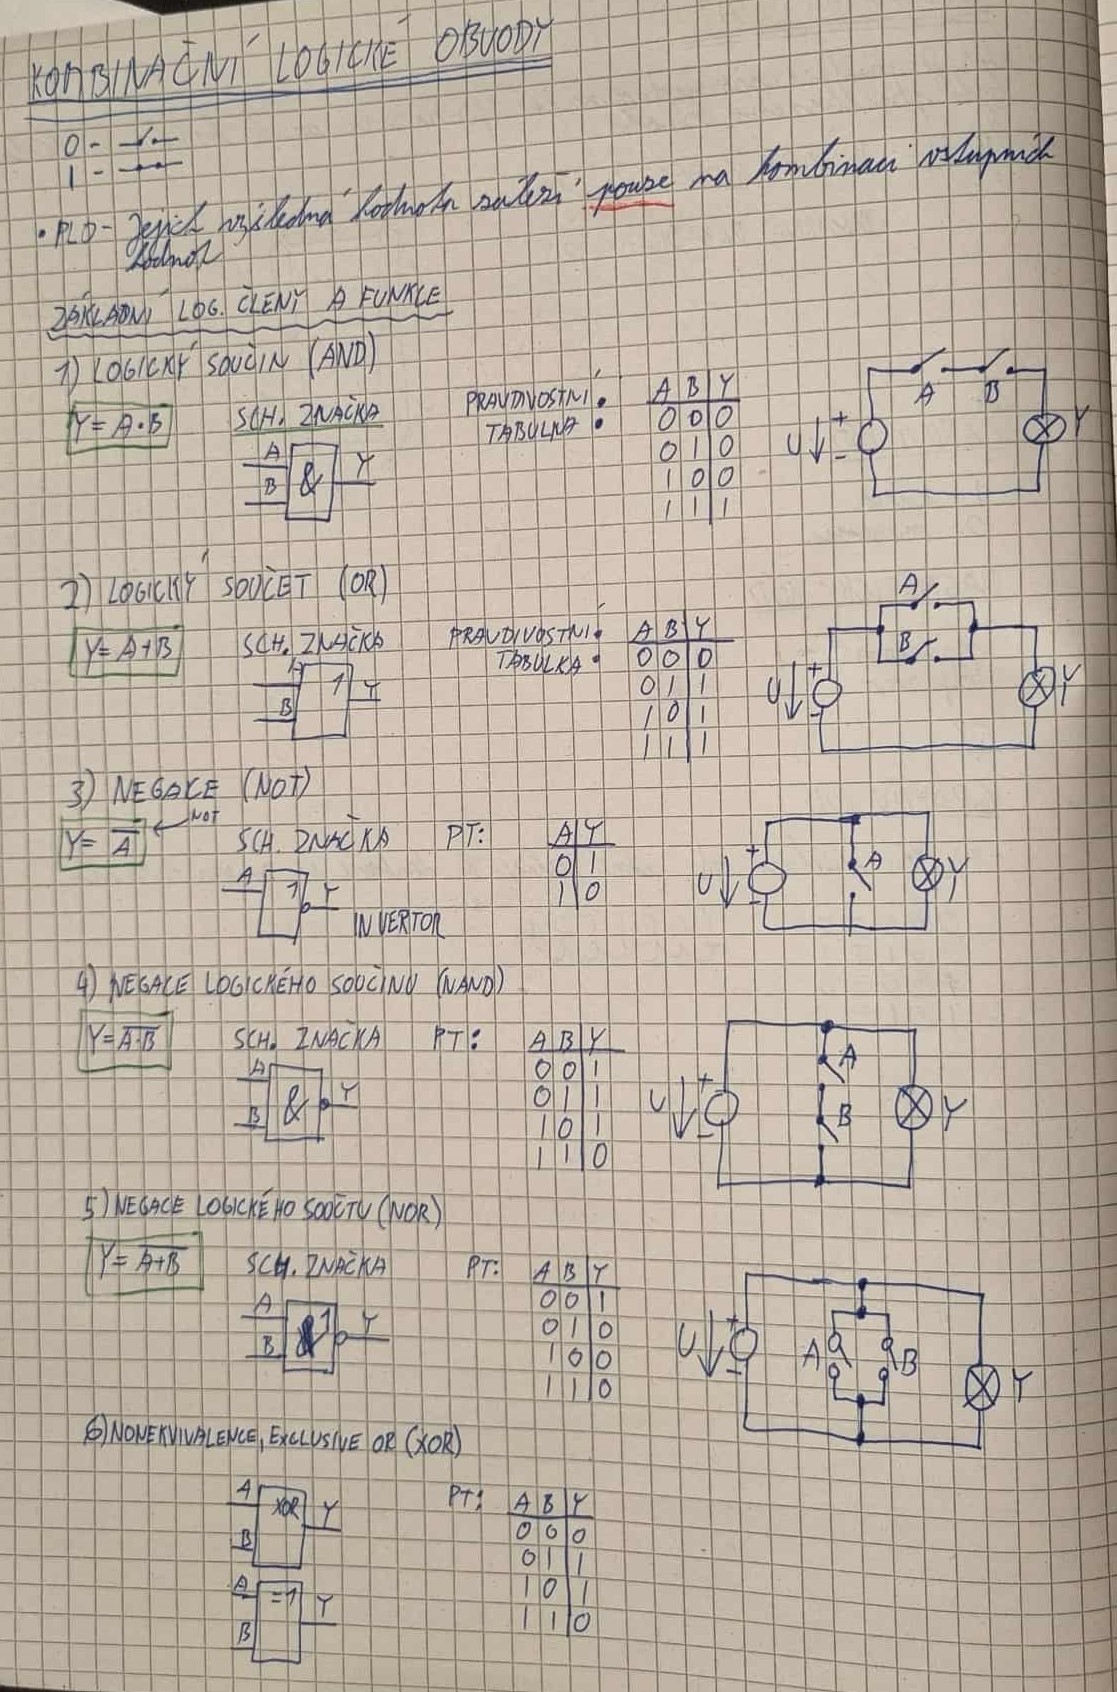 KOMBINAČNÍ LOGICKÉ OBVODY
0 -
1 -
• PLD - Jejich výsledná hodnota záleží pouze na kombinaci vstupních
hodnot
ZÁKLADNÍ LOG. ČLENY A FUNKCE
1) LOGICKÝ SOUČIN (AND)
Y = A · B
SCH. ZNAČKA
A
B
&
Y
PRAVDIVOSTNÍ
TABULKA :
A B Y
0 0 0
0 1 0
1 0 0
1 1 1
U + - A B Y
2) LOGICKÝ SOUČET (OR)
Y = A + B
SCH. ZNAČKA
A
B
1
Y
PRAVDIVOSTNÍ
TABULKA :
A B Y
0 0 0
0 1 1
1 0 1
1 1 1
U + - A B Y
3) NEGACE (NOT)
Y = A̅ ← NOT
SCH. ZNAČKA
A
1
Y
INVERTOR
PT:
A Y
0 1
1 0
U + - A Y
4) NEGACE LOGICKÉHO SOUČINU (NAND)
Y = A̅·̅B̅
SCH. ZNAČKA
A
B
&
Y
PT:
A B Y
0 0 1
0 1 1
1 0 1
1 1 0
U + - A B Y
5) NEGACE LOGICKÉHO SOUČTU (NOR)
Y = A̅+̅B̅
SCH. ZNAČKA
A
B
1
Y
PT:
A B Y
0 0 1
0 1 0
1 0 0
1 1 0
U + - A B Y
6) NONEKVIVALENCE, EXCLUSIVE OR (XOR)
A
B
XOR
Y
A
B
=1
Y
PT:
A B Y
0 0 0
0 1 1
1 0 1
1 1 0